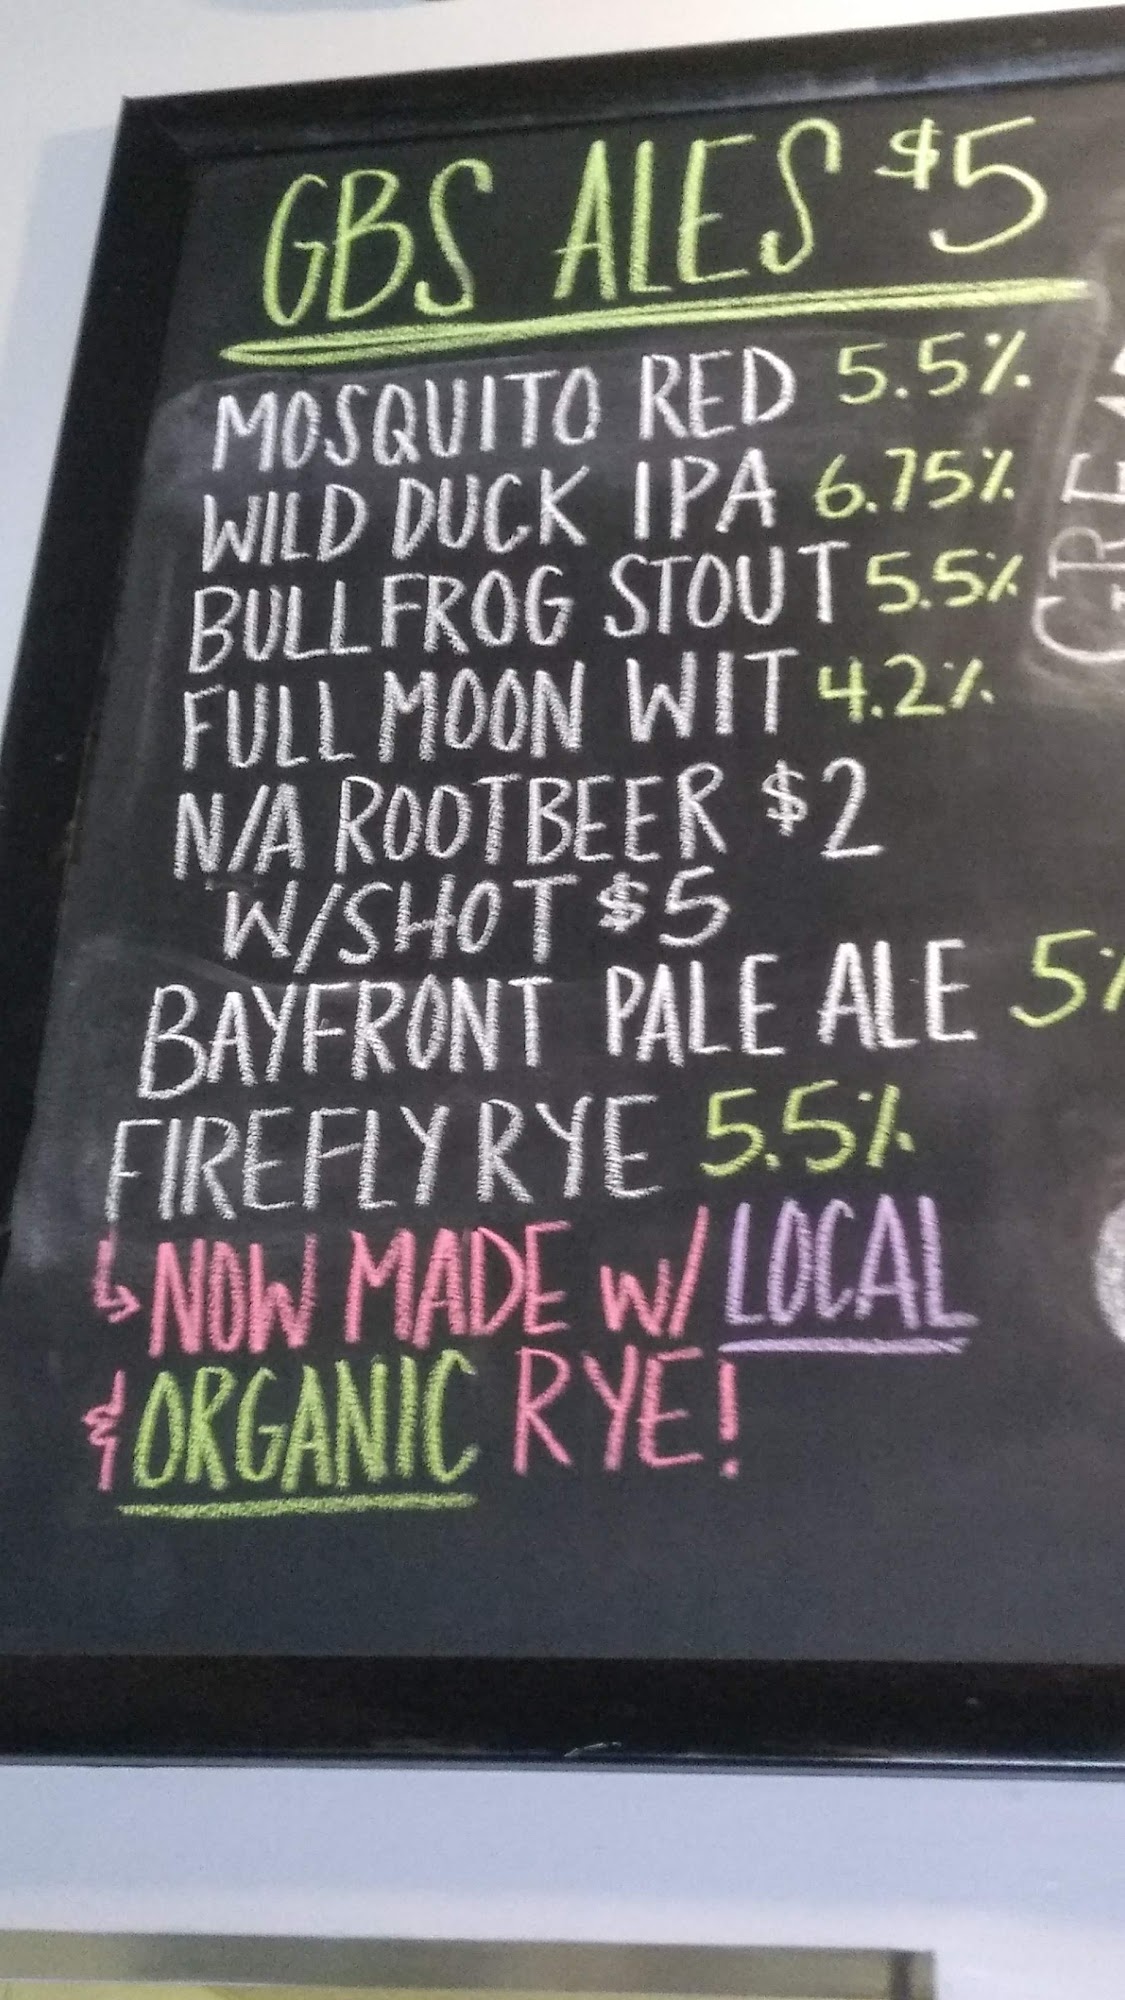 GBS ALES $5
MOSQUITO RED 5.5%
WILD DUCK IPA 6.75%
BULLFROG STOUT 5.5%
FULL MOON WIT 4.2%
N/A ROOTBEER $2
W/SHOT $5
BAYFRONT PALE ALE 5%
FIREFLY RYE 5.5%
↳ NOW MADE W/ LOCAL
& ORGANIC RYE!